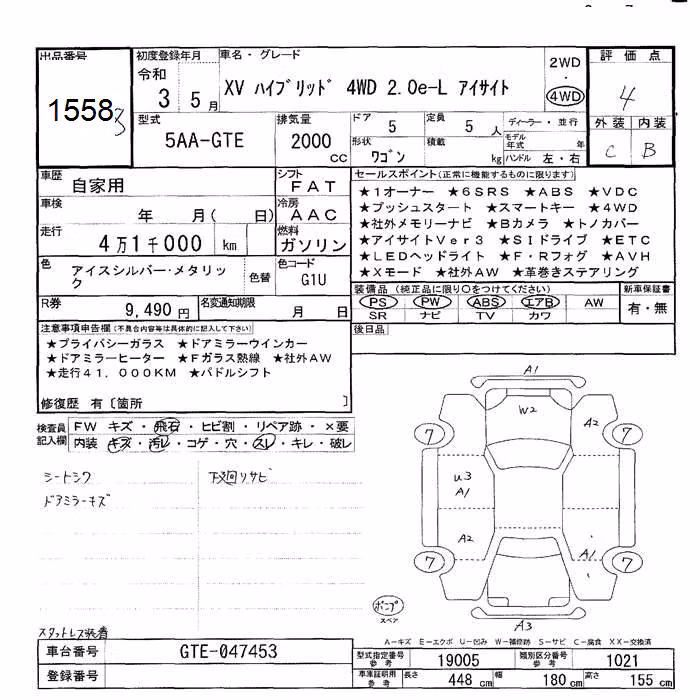 出品番号
15583
初度登録年月
令和
3 5月
車名・グレード
XV ハイブリッド 4WD 2.0e-L アイサイト
2WD
・
4WD
評価点
4
外装 内装
C B
型式
5AA-GTE
排気量
2000
cc
ドア
5
定員
5 人
ディーラー・並行
形状
ワゴン
積載
kg
モデル年式
年
ハンドル 左・右
車歴
自家用
シフト
FAT
車検
年 月( 日)
冷房
AAC
走行
4万1千000 km
燃料
ガソリン
色
アイスシルバー・メタリック
色替
色コード
G1U
R券
9,490 円
名変通知期限
月 日
セールスポイント(正常に機能するものに限ります)
★1オーナー ★6SRS ★ABS ★VDC
★プッシュスタート ★スマートキー ★4WD
★社外メモリーナビ ★Bカメラ ★トノカバー
★アイサイトVer3 ★SIドライブ ★ETC
★LEDヘッドライト ★F・Rフォグ ★AVH
★Xモード ★社外AW ★革巻きステアリング
装備品(純正品に限り○をつけてください)
PS PW ABS エアB AW
SR ナビ TV カワ
新車保証書
有・無
後日品
注意事項申告欄(不具合内容等は具体的に記入して下さい)
★プライバシーガラス ★ドアミラーウインカー
★ドアミラーヒーター ★Fガラス熱線 ★社外AW
★走行41,000KM ★パドルシフト
修復歴 有[箇所 ]
検査員記入欄
FW キズ・飛石・ヒビ割・リペア跡・×要
内装 キズ・汚レ・コゲ・穴・スレ・キレ・破レ
シートシワ
下廻リサビ
ドアミラーキズ
スタットレス装着
A1
W2
A2
7
7
U3
A1
A2
A1
7
7
A3
ポンプ
スペア
A-キズ E-エクボ U-凹み W-補修跡 S-サビ C-腐食 XX-交換済
車台番号
GTE-047453
登録番号
型式指定番号
参考
19005
類別区分番号
参考
1021
車庫証明用
参考
長さ
448 cm
幅
180 cm
高さ
155 cm